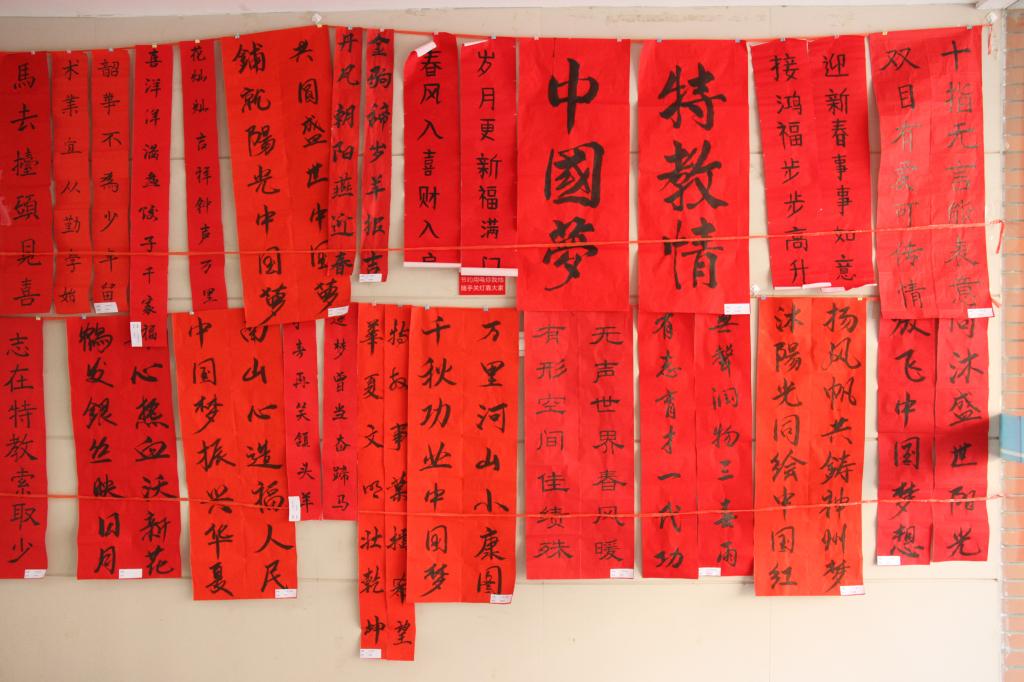 十指无言能表意
双目有爱可传情
迎新春事事如意
接鸿福步步高升
特教情
中國夢
岁月更新福满门
春风入喜财入户
节约用电你我他
随手关灯靠大家
羊报吉
丹凤朝阳燕迎春
共圆盛世中国梦
鋪就陽光中国梦
花灿灿吉祥钟声万里
喜洋洋满盘饺子千家福
韶華不為少年留
术業宜从勤学始
馬去擡頭見喜
同沐盛世阳光
放飞中国梦想
扬风帆共鑄神州梦
沐陽光同绘中国红
無聲润物三春雨
有志育才一代功
无声世界春风暖
有形空间佳绩殊
万里河山小康图
千秋功业中国梦
特教事業播希望
華夏文明壮乾坤
追梦曾当奋蹄马
再笑领头羊
南山心造福人民
中国梦振兴华夏
心熱血沃新花
鶴发銀丝映日月
志在特教索取少